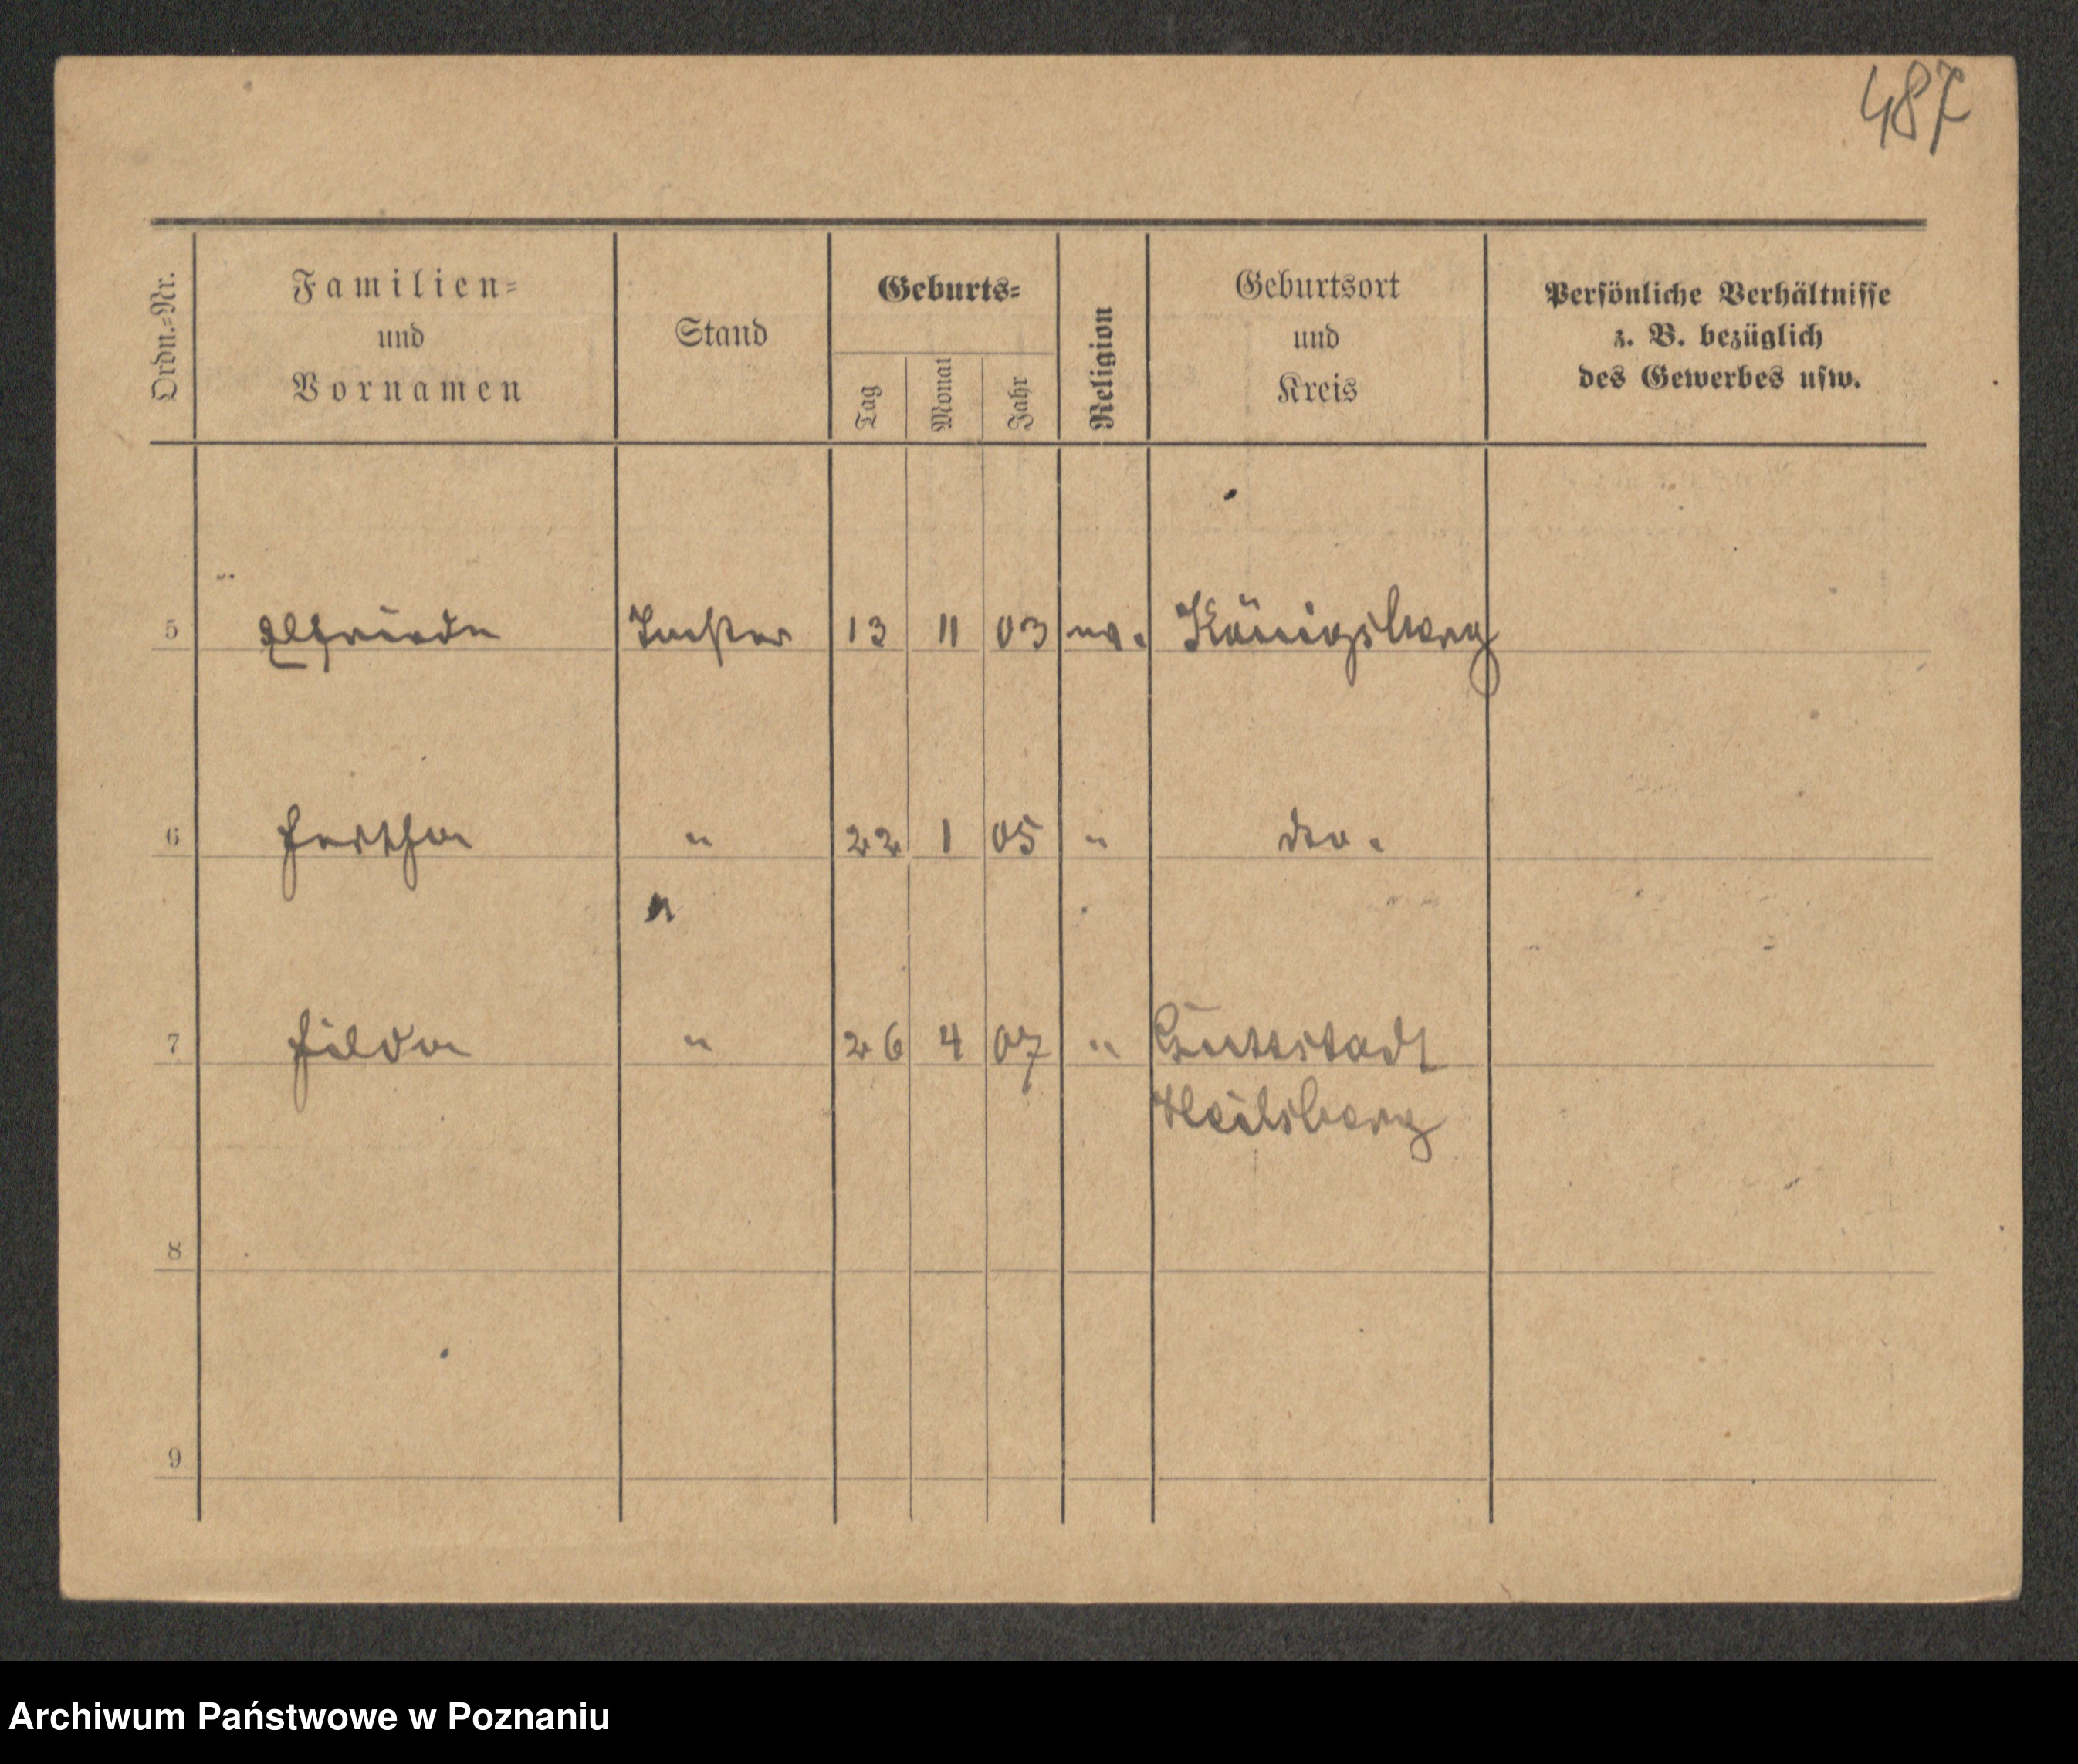 487
Ordn.=Nr.
Familien=
und
Vornamen
Stand
Geburts=
Tag
Monat
Jahr
Religion
Geburtsort
und
Kreis
Persönliche Verhältnisse
z. B. bezüglich
des Gewerbes usw.
5 Elfriede Tochter 13 11 03 ev. Königsberg
6 Hertha " 22 1 05 " dto.
7 Hilda " 26 4 07 " Guttstadt
Heilsberg
8
9
Archiwum Państwowe w Poznaniu